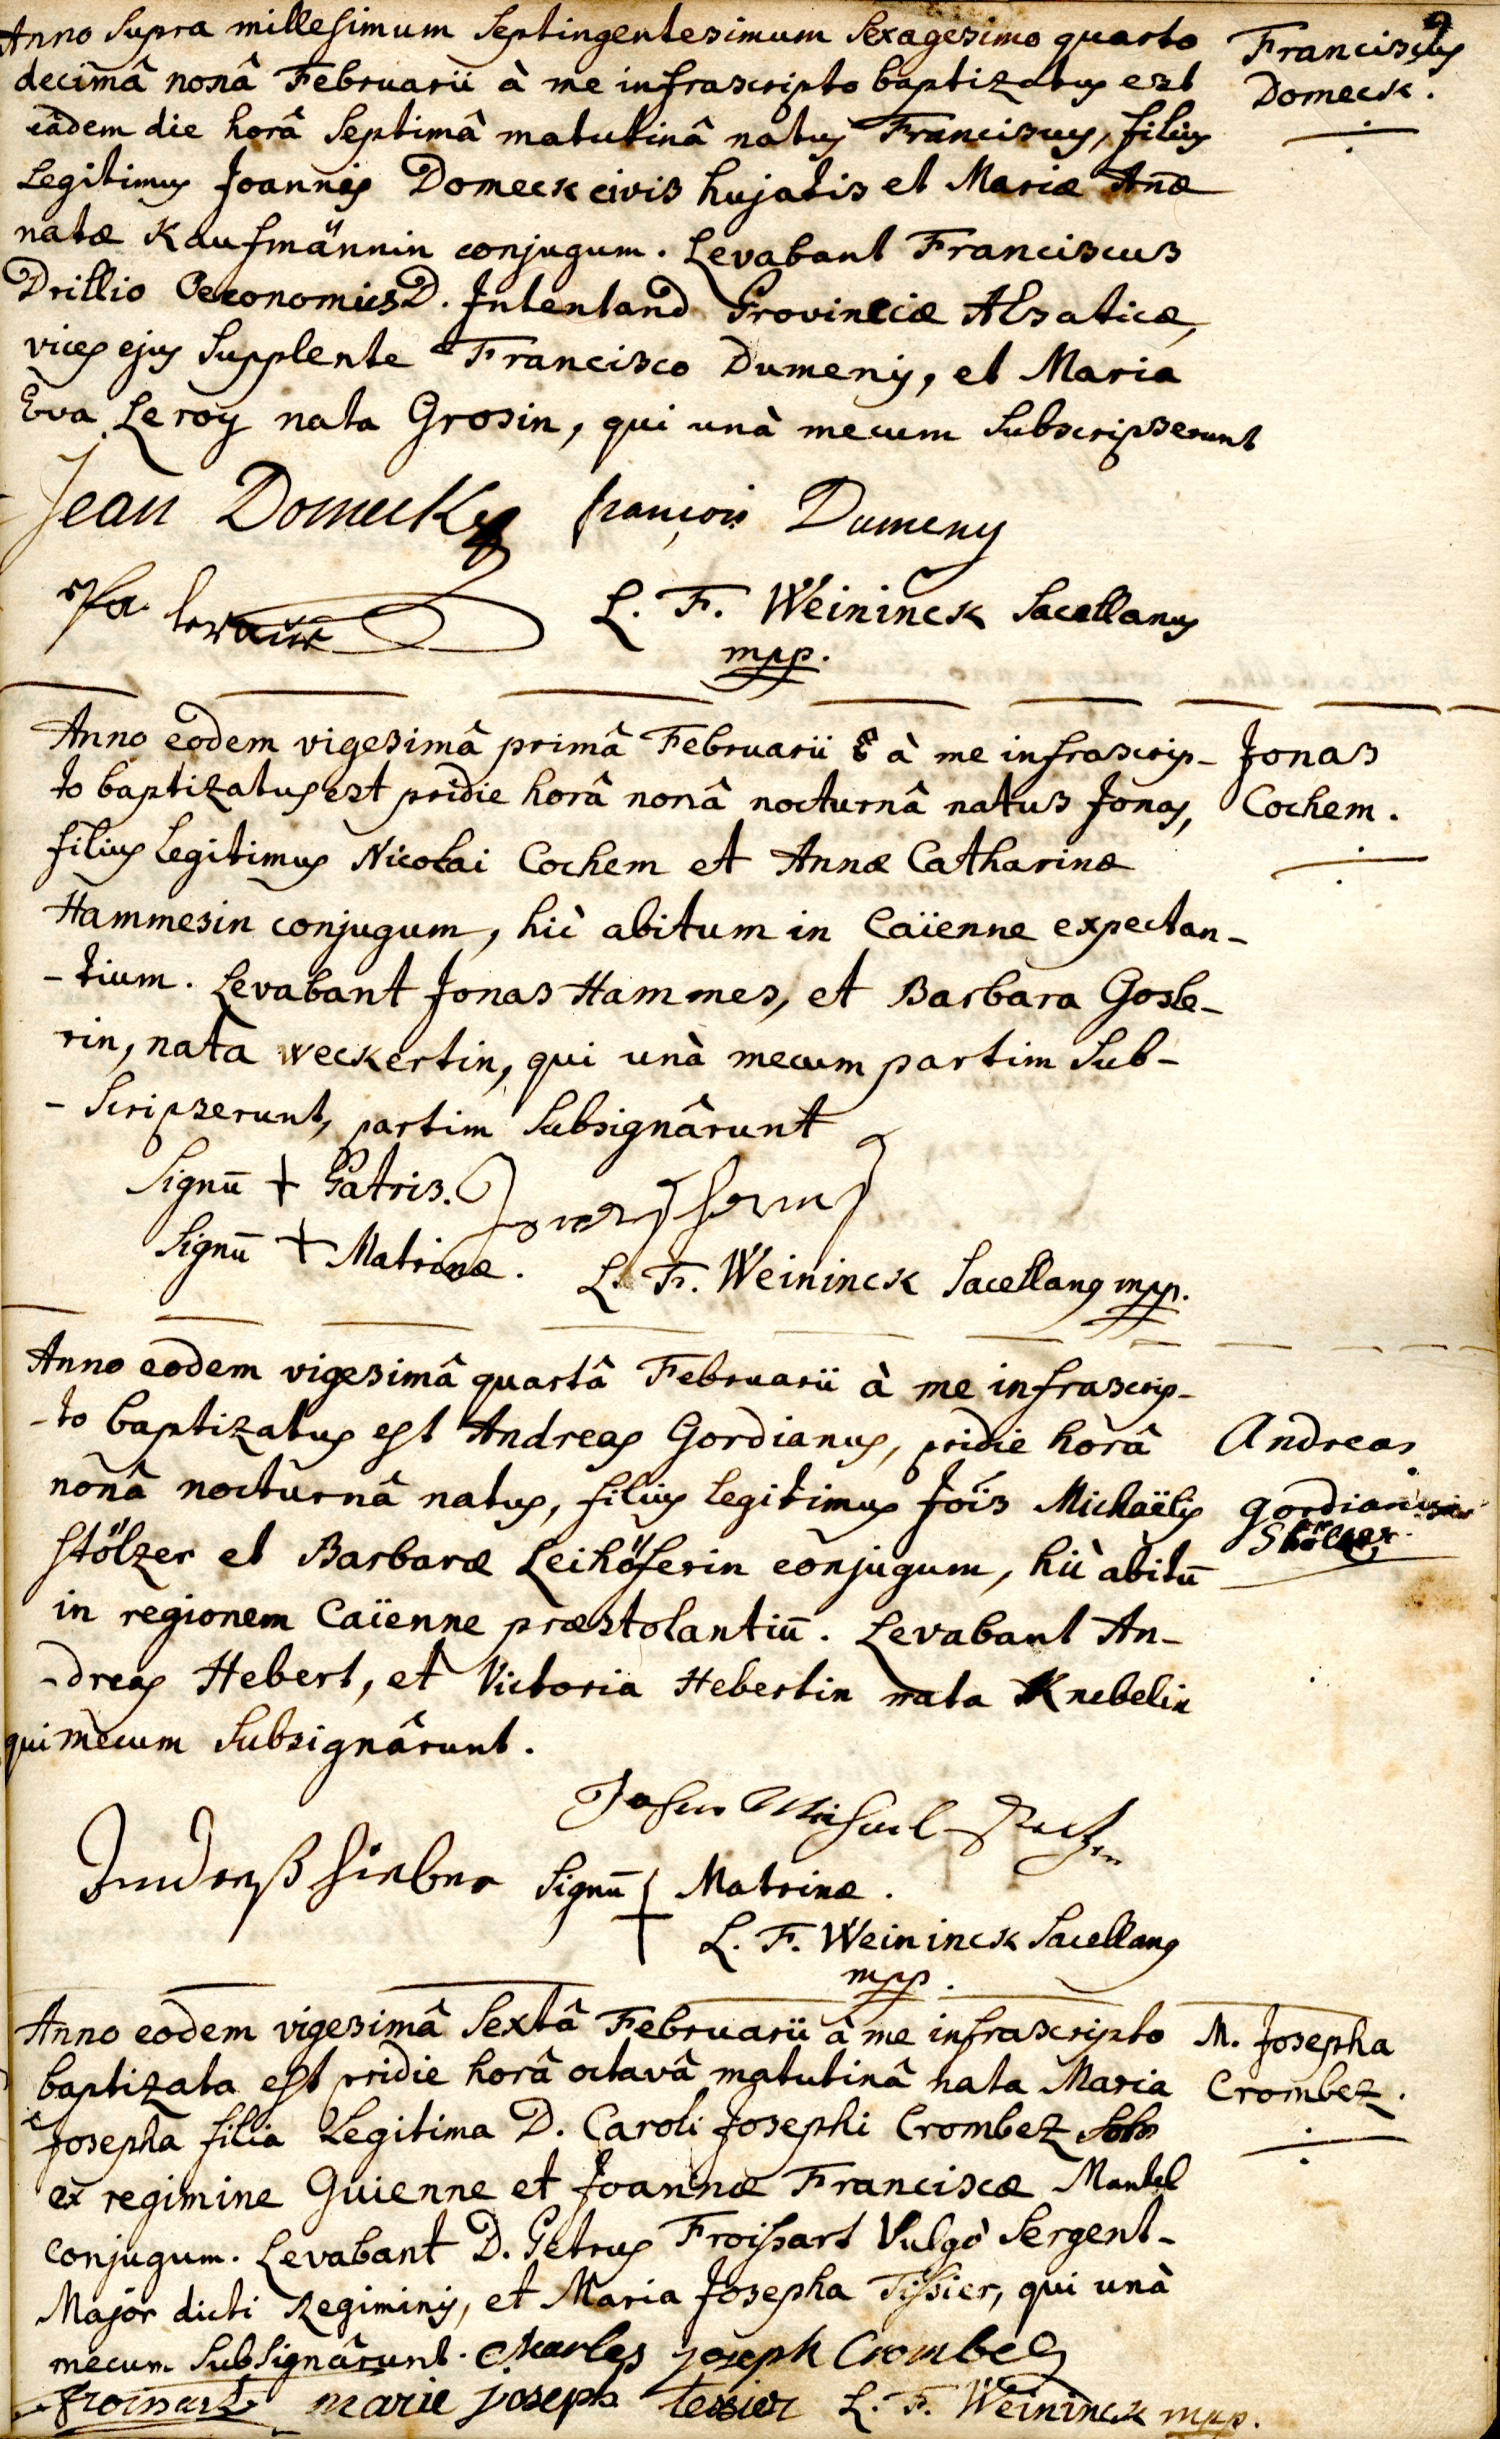 9
Anno Supra millesimum Septingentesimum Sexagesimo quarto
decimâ nonâ Februarii à me infrascripto baptizatus est
eâdem die horâ Septimâ matutinâ natus Franciscus, filius
Legitimus Joannis Domeck civis hujatis et Mariæ Añæ
natæ Kaufmännin conjugum. Levabant Franciscus
Drillio Oeconomus D. Intentand Provinciæ Alsaticæ,
vices ejus Supplente Francisco Dumeny, et Maria
Eva Leroy nata Grosin, qui unà mecum Subscripserunt
Franciscus
Domeck.
Jean Domeck françois Dumeny
L. F. Weininck Sacellanus
mpp.
Anno eodem vigesimâ primâ Februarii à me infrascrip-
to baptizatus est pridie horâ nonâ nocturnâ natus Jonas,
filius Legitimus Nicolai Cochem et Annæ Catharinæ
Hammesin conjugum, hìc abitum in Caïenne expectan-
-tium. Levabant Jonas Hammes, et Barbara Gosle-
rin, nata Weckertin, qui unà mecum partim Sub-
-Scripserunt, partim Subsignârunt
Jonas
Cochem.
Signū + Patris.
Signū + Matrinæ.
L. F. Weininck Sacellanus mpp.
Anno eodem vigesimâ quartâ Februarii à me infrascrip-
-to baptizatus est Andreas Gordianus, pridie horâ
nonâ nocturnâ natus, filius legitimus Jois Michaëlis
Stölzer et Barbaræ Leihöferin conjugum, hìc abitū
in regionem Caïenne præstolantiū. Levabant An-
-dreas Hebert, et Victoria Hebertin nata Knebelin
qui mecum Subsignârunt.
Andreas
gordianus
Stölzer
Johan Michael
Signū + Matrinæ.
L. F. Weininck Sacellanus
mpp.
Anno eodem vigesimâ Sextâ Februarii à me infrascripto
baptizata est pridie horâ octavâ matutinâ nata Maria
Josepha filia Legitima D. Caroli Josephi Crombez
ex regimine Guienne et Joannæ Franciscæ Mantel
conjugum. Levabant D. Petrus Froissart Vulgò Sergent-
Major dicti Regiminis, et Maria Josepha Tissier, qui unà
mecum Subsignârunt. Charles joseph Crombez
froissart marie joseph tessier L. F. Weininck mpp.
M. Josepha
Crombez.